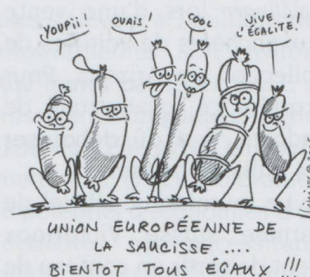 YOUPII !
OUAIS !
COOL
VIVE
L'ÉGALITÉ !
UNION EUROPÉENNE DE
LA SAUCISSE ....
BIENTOT TOUS ÉGAUX !!!